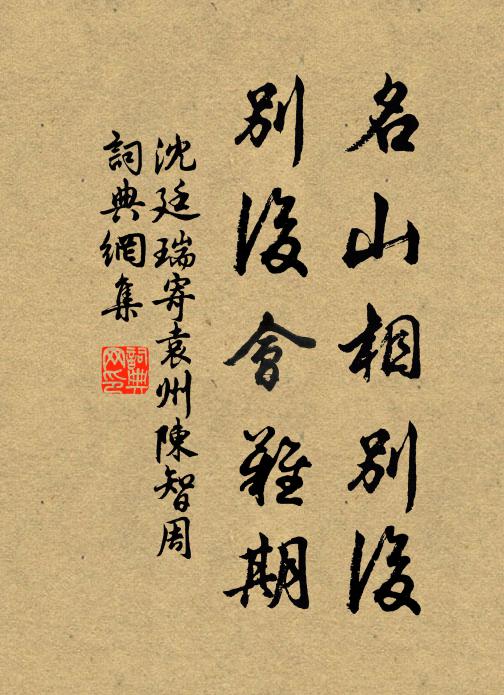 名山相別後
別後會難期
沈廷瑞寄袁州陳智周
詞典網集
詞典网印